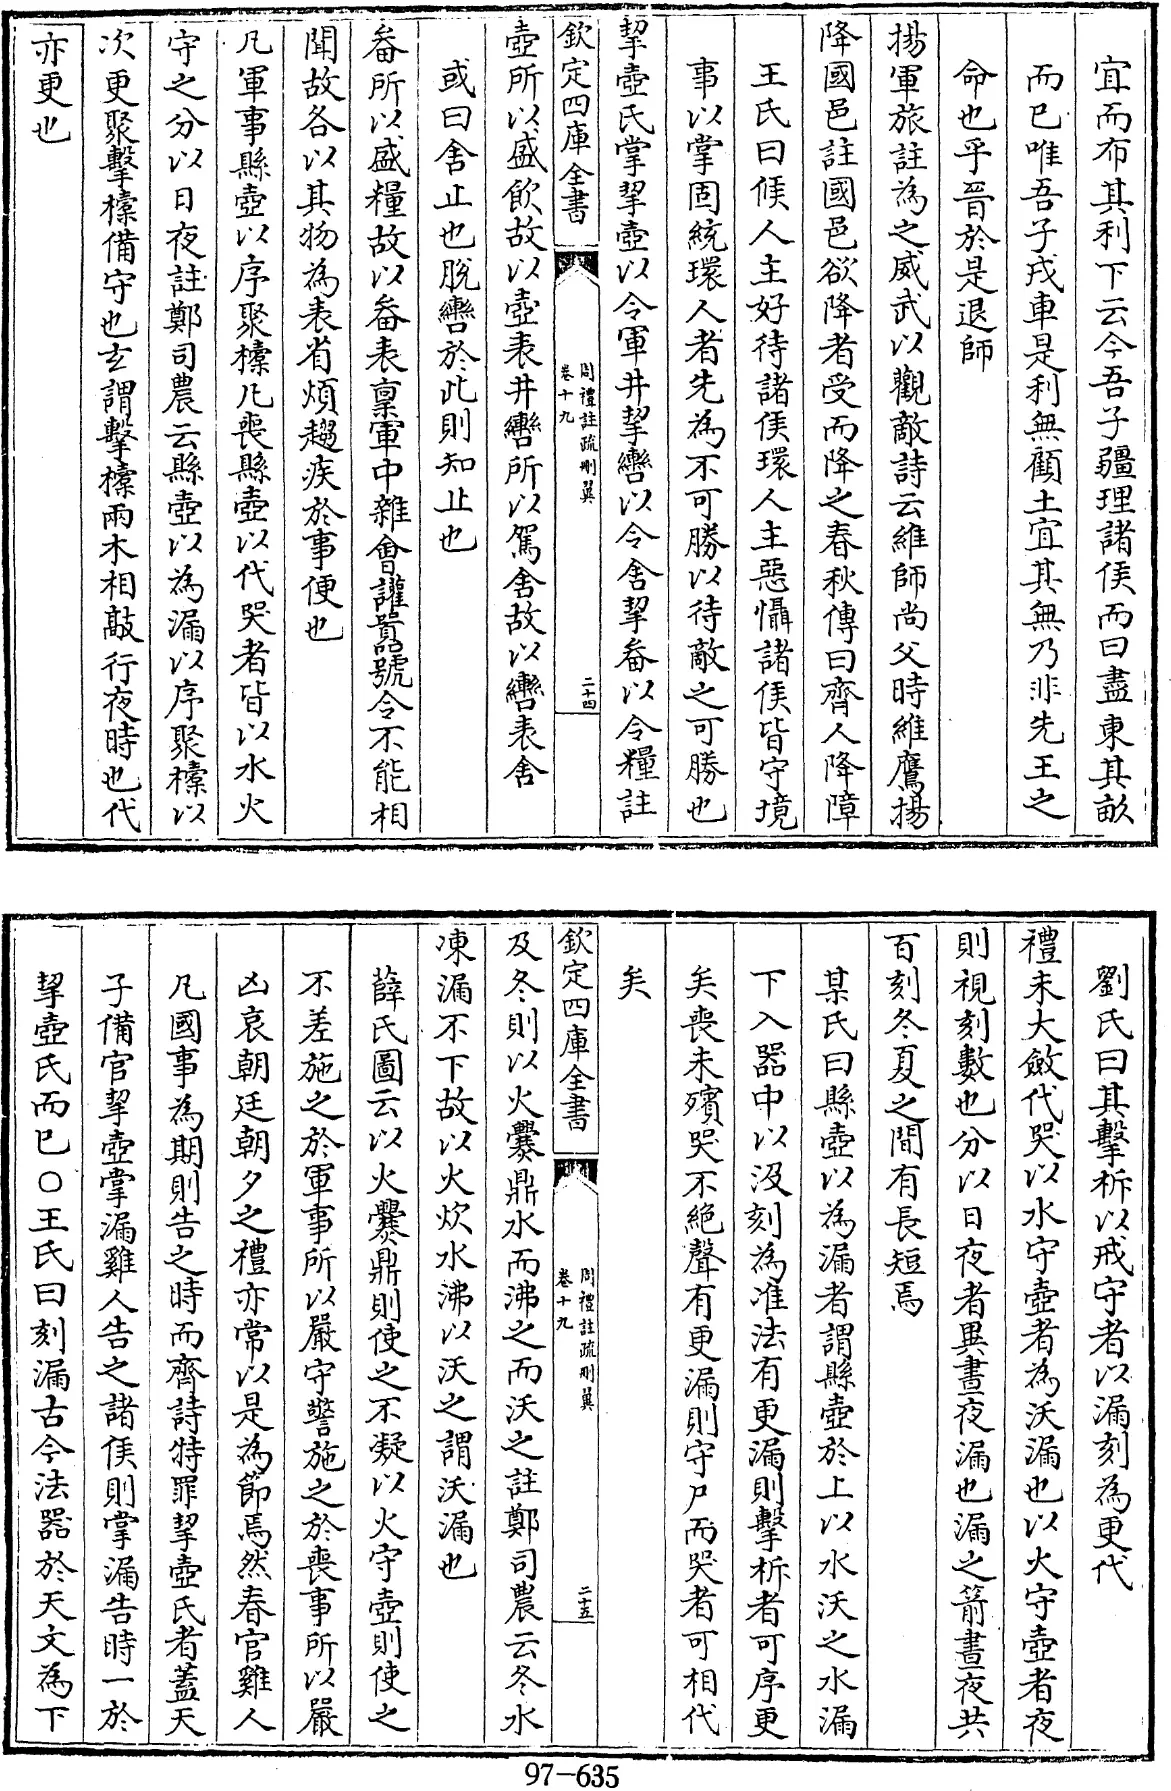 宜而布其利下云今吾子疆理諸侯而曰盡東其畝
而已唯吾子戎車是利無顧土宜其無乃非先王之
命也乎晉於是退師
揚軍旅註為之威武以觀敵詩云維師尚父時維鷹揚
降國邑註國邑欲降者受而降之春秋傳曰齊人降障
王氏曰候人主好待諸侯環人主惡懾諸侯皆守境
事以掌固統環人者先為不可勝以待敵之可勝也
挈壺氏掌挈壺以令軍井挈轡以令舍挈畚以令糧註
欽定四庫全書
周禮註疏刪翼
卷十九
二十四
壺所以盛飲故以壺表井轡所以駕舍故以轡表舍
或曰舍止也脫轡於此則知止也
畚所以盛糧故以畚表稟軍中雜會讙嚻號令不能相
聞故各以其物為表省煩趨疾於事便也
凡軍事縣壺以序聚㯓凡喪縣壺以代哭者皆以水火
守之分以日夜註鄭司農云縣壺以為漏以序聚㯓以
次更聚擊㯓備守也玄謂擊㯓兩木相敲行夜時也代
亦更也
劉氏曰其擊柝以戒守者以漏刻為更代
禮未大斂代哭以水守壺者為沃漏也以火守壺者夜
則視刻數也分以日夜者異晝夜漏也漏之箭晝夜共
百刻冬夏之間有長短焉
某氏曰縣壺以為漏者謂縣壺於上以水沃之水漏
下入器中以沒刻為准法有更漏則擊柝者可序更
矣喪未殯哭不絕聲有更漏則守尸而哭者可相代
矣
欽定四庫全書
周禮註疏刪翼
卷十九
二十五
及冬則以火爨鼎水而沸之而沃之註鄭司農云冬水
凍漏不下故以火炊水沸以沃之謂沃漏也
薛氏圖云以火爨鼎則使之不凝以火守壺則使之
不差施之於軍事所以嚴守警施之於喪事所以嚴
凶哀朝廷朝夕之禮亦常以是為節焉然春官雞人
凡國事為期則告之時而齊詩特罪挈壺氏者蓋天
子備官挈壺掌漏雞人告之諸侯則掌漏告時一於
挈壺氏而已○王氏曰刻漏古今法器於天文為下
97-635